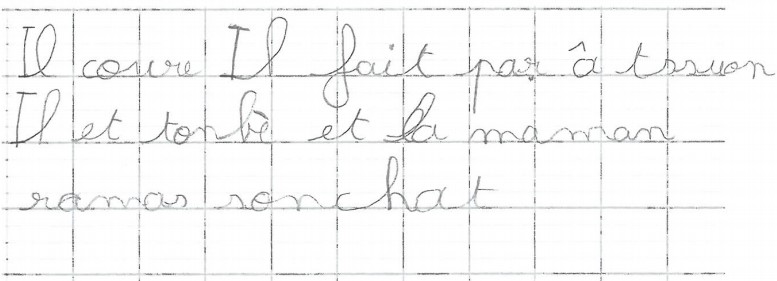 Il coure Il fait par â tssuon
Il et tonbè et la maman
ramas son chat